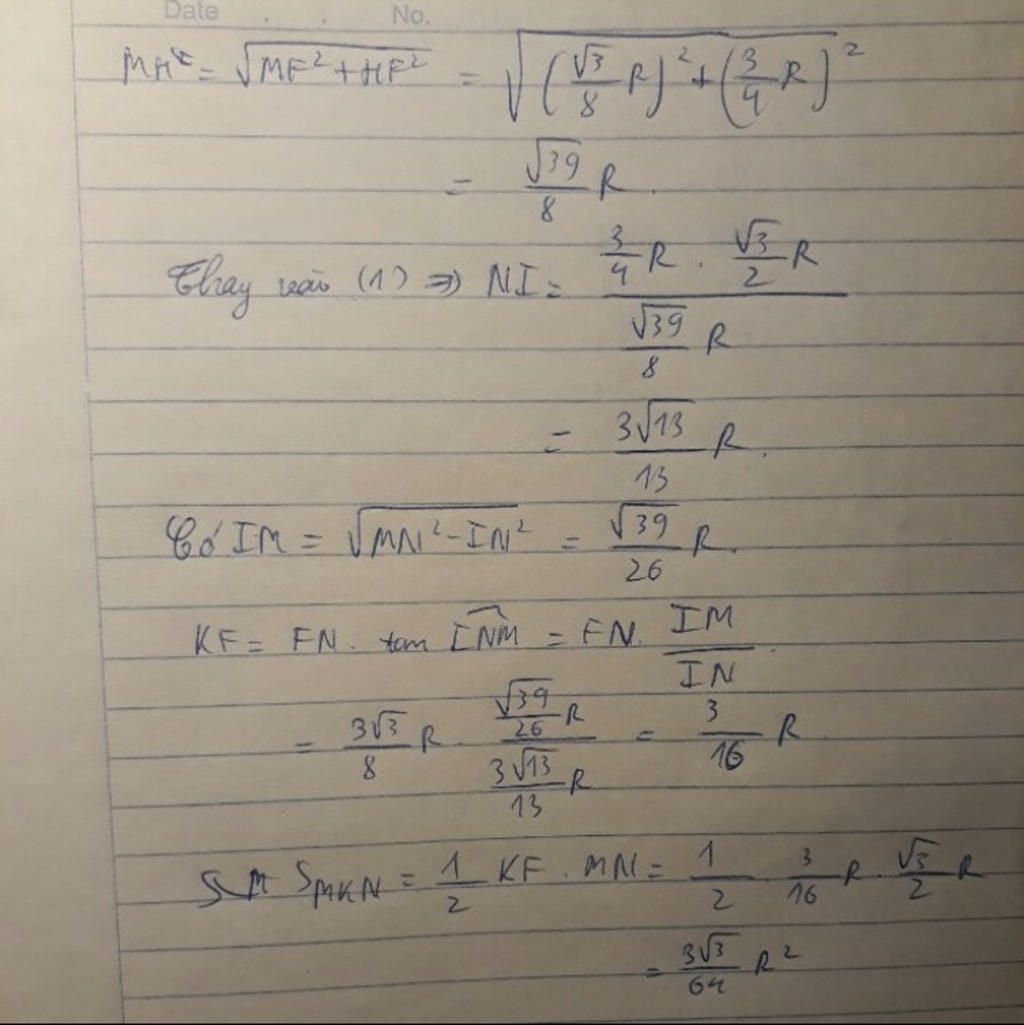 Date . . No.
MH = √(MF² + HF²) = √((√3/8 R)² + (3/4 R)²)
= √39/8 R.
Thay vào (1) ⇒ NI = (3/4 R . √3/2 R)/(√39/8 R)
= 3√13/13 R.
Có IM = √(MN² - IN²) = √39/26 R.
KF = FN. tan \widehat{INM} = FN. IM/IN.
= 3√3/8 R. (√39/26 R)/(3√13/13 R) = 3/16 R.
S_MKN = 1/2 KF. MN = 1/2 . 3/16 R. √3/2 R
= 3√3/64 R²